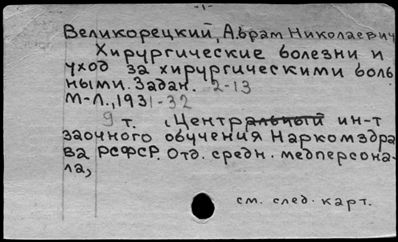 -1-
Великорецкий, Абрам Николаевич
Хирургические болезни и
уход за хирургическими боль
ными. Задан. 2-13
М-Л., 1931-32
9 т. (Центральный ин-т
заочного обучения Наркомздра
ва РСФСР. Отд. средн. медперсона-
ла,
см. след. карт.